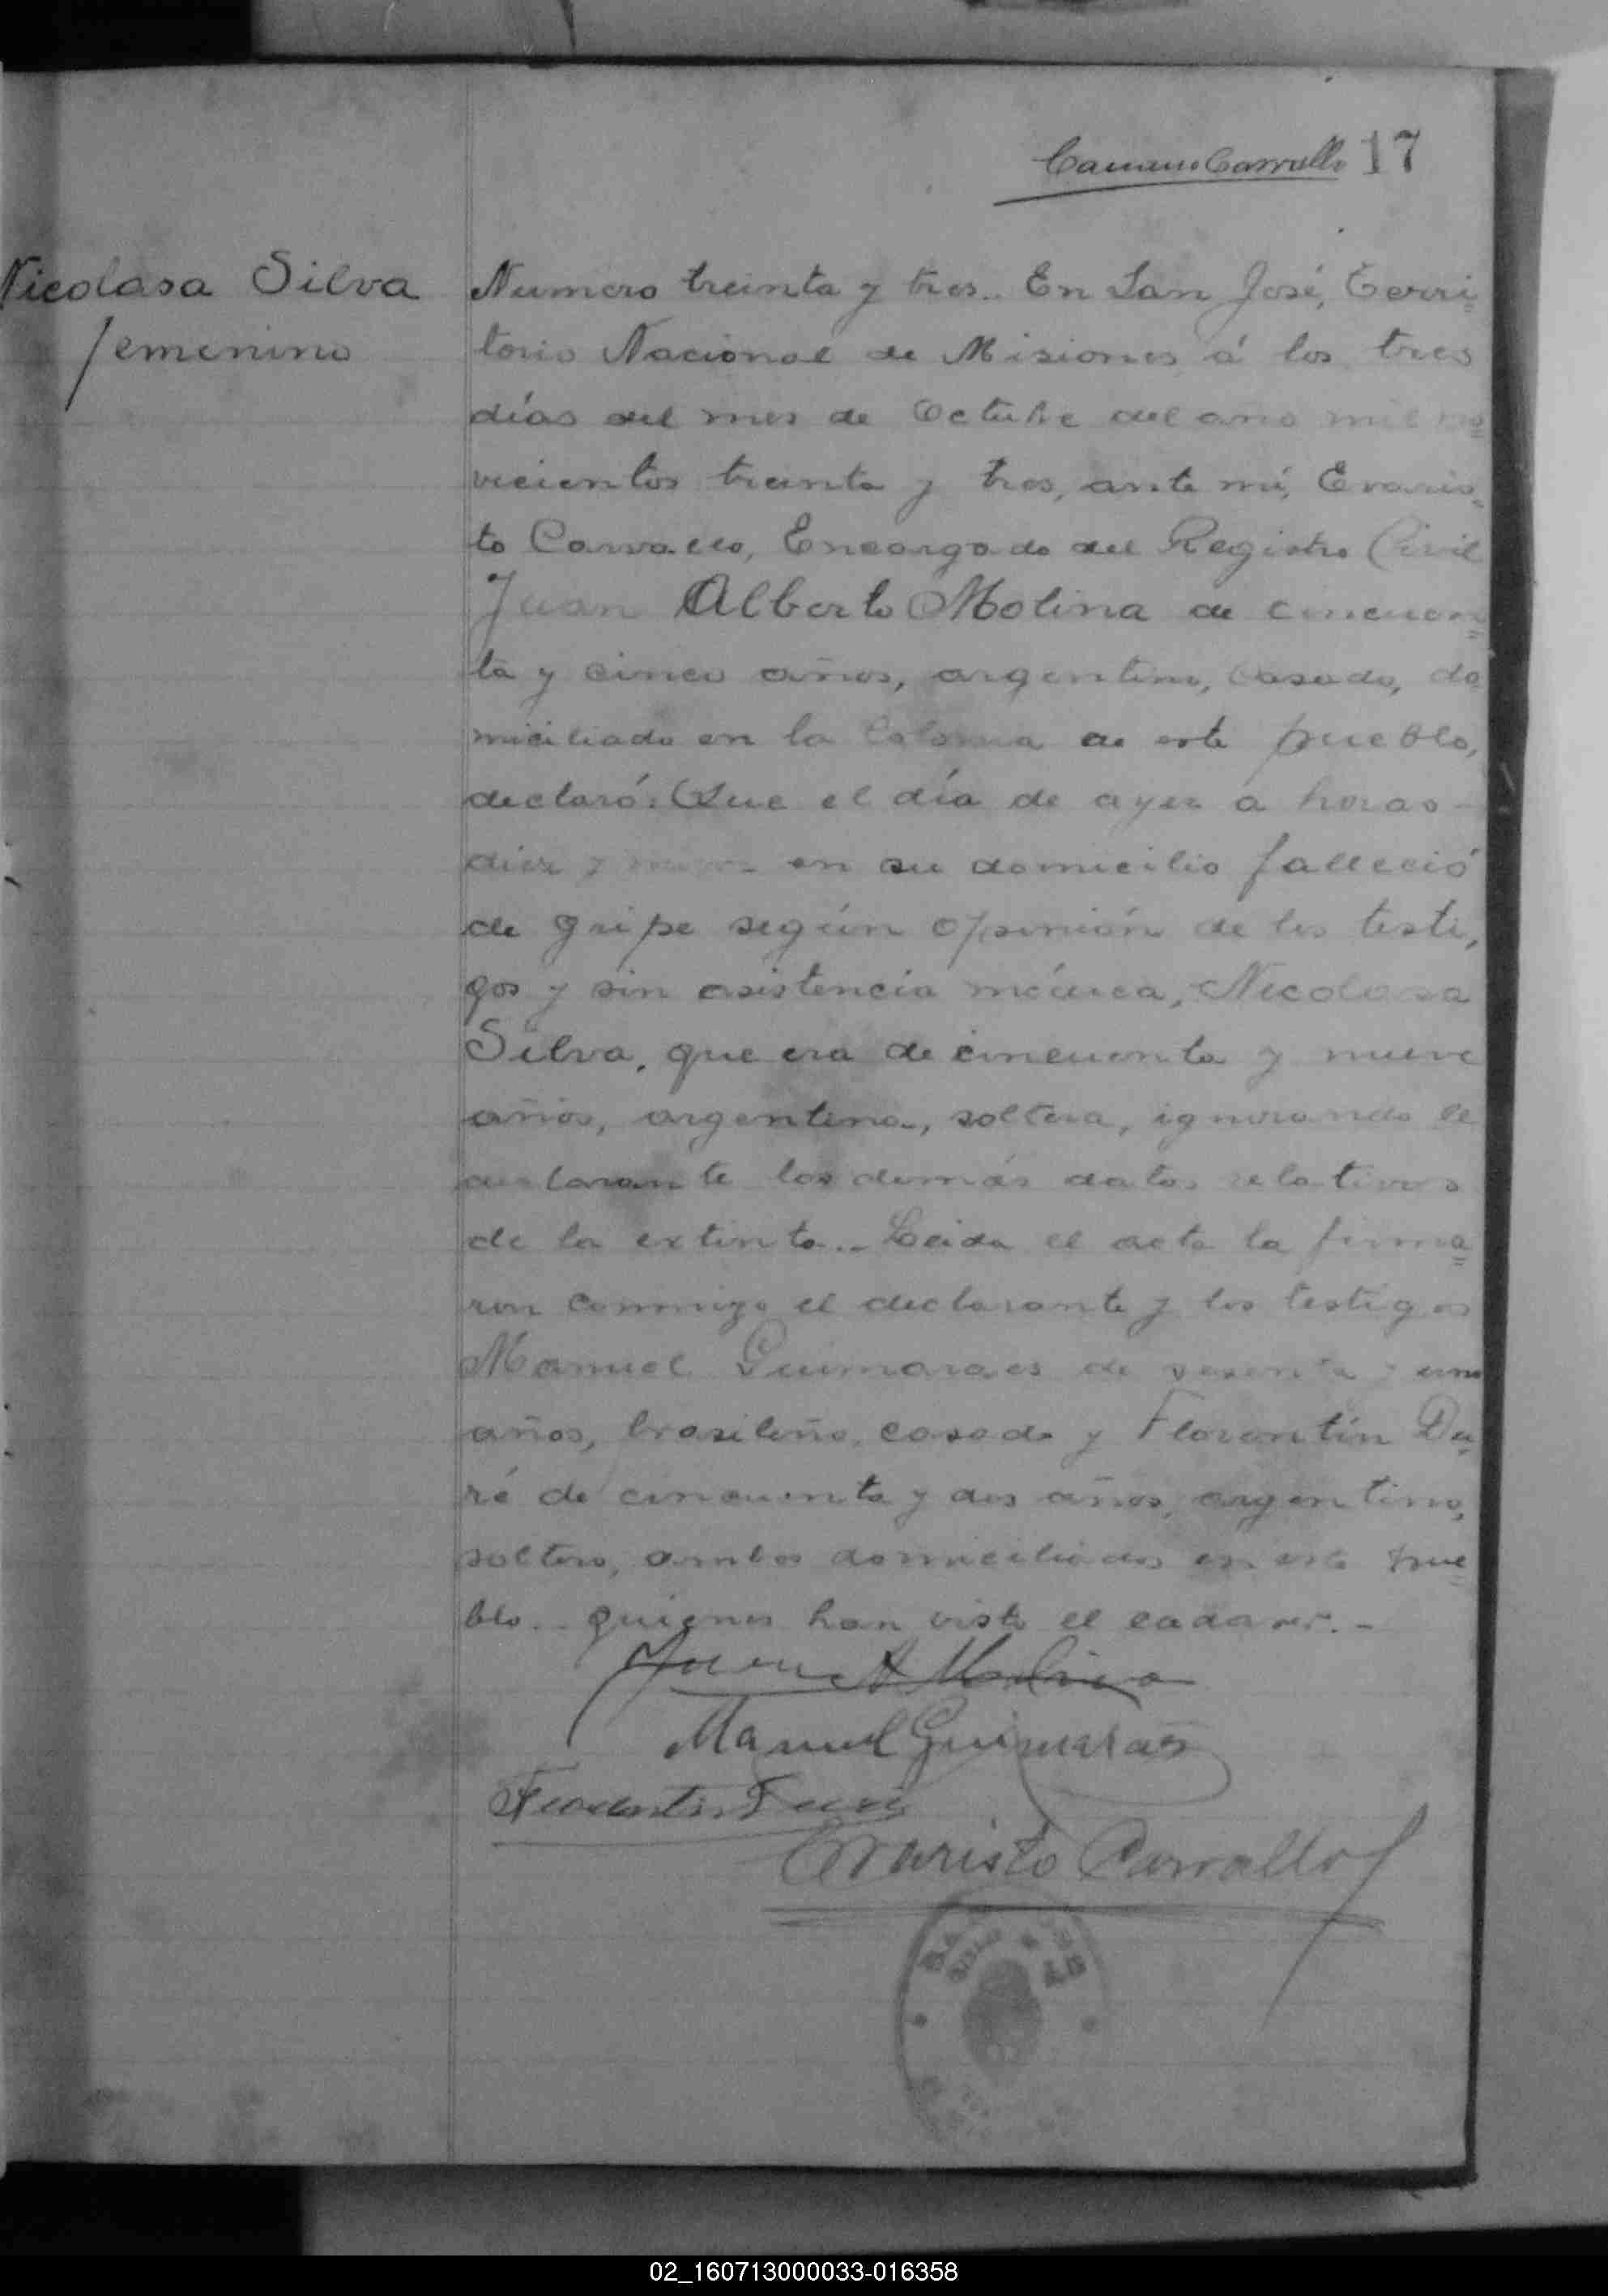 17
Nicolasa Silva
femenino
Numero treinta y tres.. En San José, Terri=
torio Nacional de Misiones, á los tres
días del mes de Octubre del año mil no=
vecientos treinta y tres, ante mí, Evaris-
to Carvallo, Encargado del Registro Civil
Juan Alberto Molina de cincuen=
ta y cinco años, argentino, casado, do=
miciliado en la Colonia de este pueblo,
declaró: Que el día de ayer a horas -
diez y en su domicilio falleció
de gripe según opinión de los testi,
gos y sin asistencia médica, Nicolasa
Silva, que era de cincuenta y nueve
años, argentina, soltera, ignorando el
declarante los demás datos relativos
de la extinta.. Leida el acta la firma=
ron conmigo el declarante y los testigos
Manuel Guimaraes de sesenta y uno
años, brasileño, casado y Florentín Du-
ré de cincuenta y dos años, argentino,
soltero, ambos domiciliados en este pue=
blo.. quienes han visto el cadaver.-
Juan A Molina
Manuel Guimaraes
Florentin Duré
Evaristo Carvallo
02_160713000033-016358